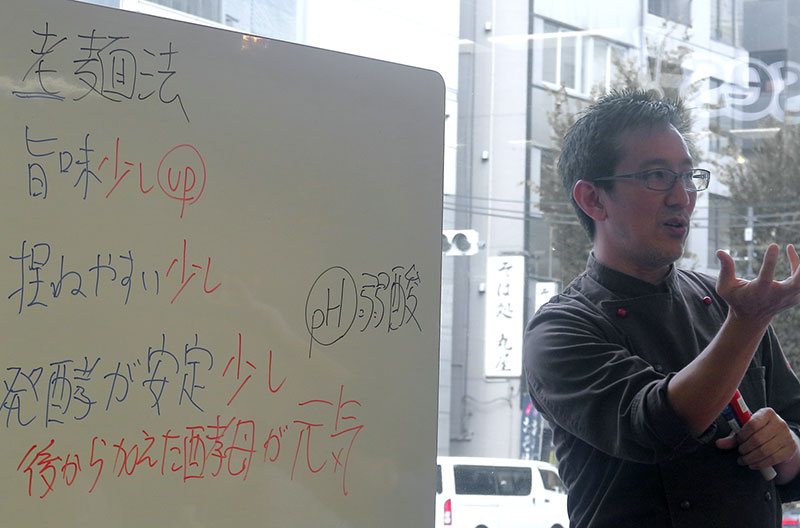 老麺法
旨味少しup
捏ねやすい少し
pH弱酸
発酵が安定少し
後から加えた酵母が元気
そば処 丸屋